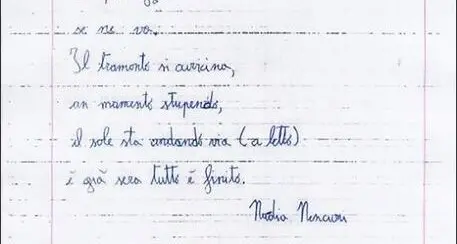 se ne va.
Il tramonto si avvicina,
un momento stupendo,
il sole sta andando via (a letto)
è già sera tutto è finito.
Nadia